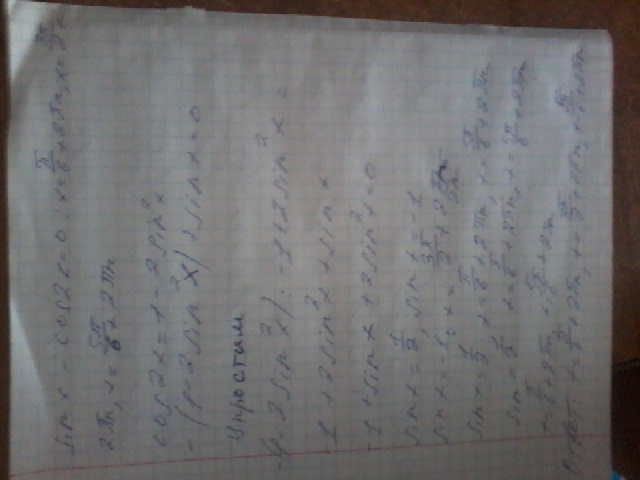 sin x - cos 2x = 0 : x = π/6 + 2πn, x = 3π/2 +
2πn, x = 5π/6 + 2πn
cos 2x = 1 - 2 sin²x
-(1 - 2 sin²x) + sin x = 0
Упростим
-(1 - 2 sin²x) : -1 + 2 sin²x =
-1 + 2 sin²x + sin x
-1 + sin x + 2 sin²x = 0
sin x = 1/2, sin x = -1
sin x = -1 : x = 3π/2 + 2πn
sin x = 1/2 : x = π/6 + 2πn, x = 5π/6 + 2πn
sin = 1/2 x = π/6 + 2πn, x = 5π/6 + 2πn
x = π/6 + 2πn x = 5π/6 + 2πn
Ответ: x = π/6 + 2πn, x = 3π/2 + 2πn, x = 5π/6 + 2πn